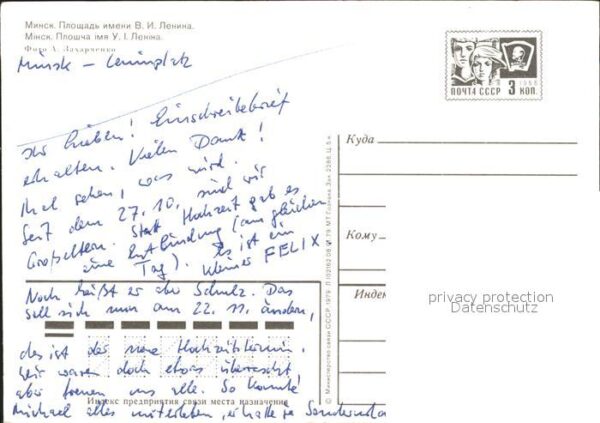 Минск. Площадь имени В. И. Ленина.
Мінск. Плошча імя У. І. Леніна.
Фото А. Захарченко
Minsk – Leninplatz
Ihr Lieben! Einschreibebrief
erhalten. Vielen Dank!
Mal sehen, was wird.
Seit dem 27.10. sind wir
Großeltern. Statt Hochzeit gab es
eine Entbindung (am gleichen
Tag). Es ist ein
kleiner FELIX
Noch heißt er aber Schulz. Das
soll sich nun am 22.11. ändern,
das ist der neue Hochzeitstermin.
Wir waren doch etwas überrascht,
aber freuen uns alle. So konnte
Michael alles miterleben, er hatte ja
Индекс предприятия связи места назначения
ПОЧТА СССР 3 КОП.
1966
Куда
Кому
Индек
© Министерство связи СССР. 1979
privacy protection
Datenschutz